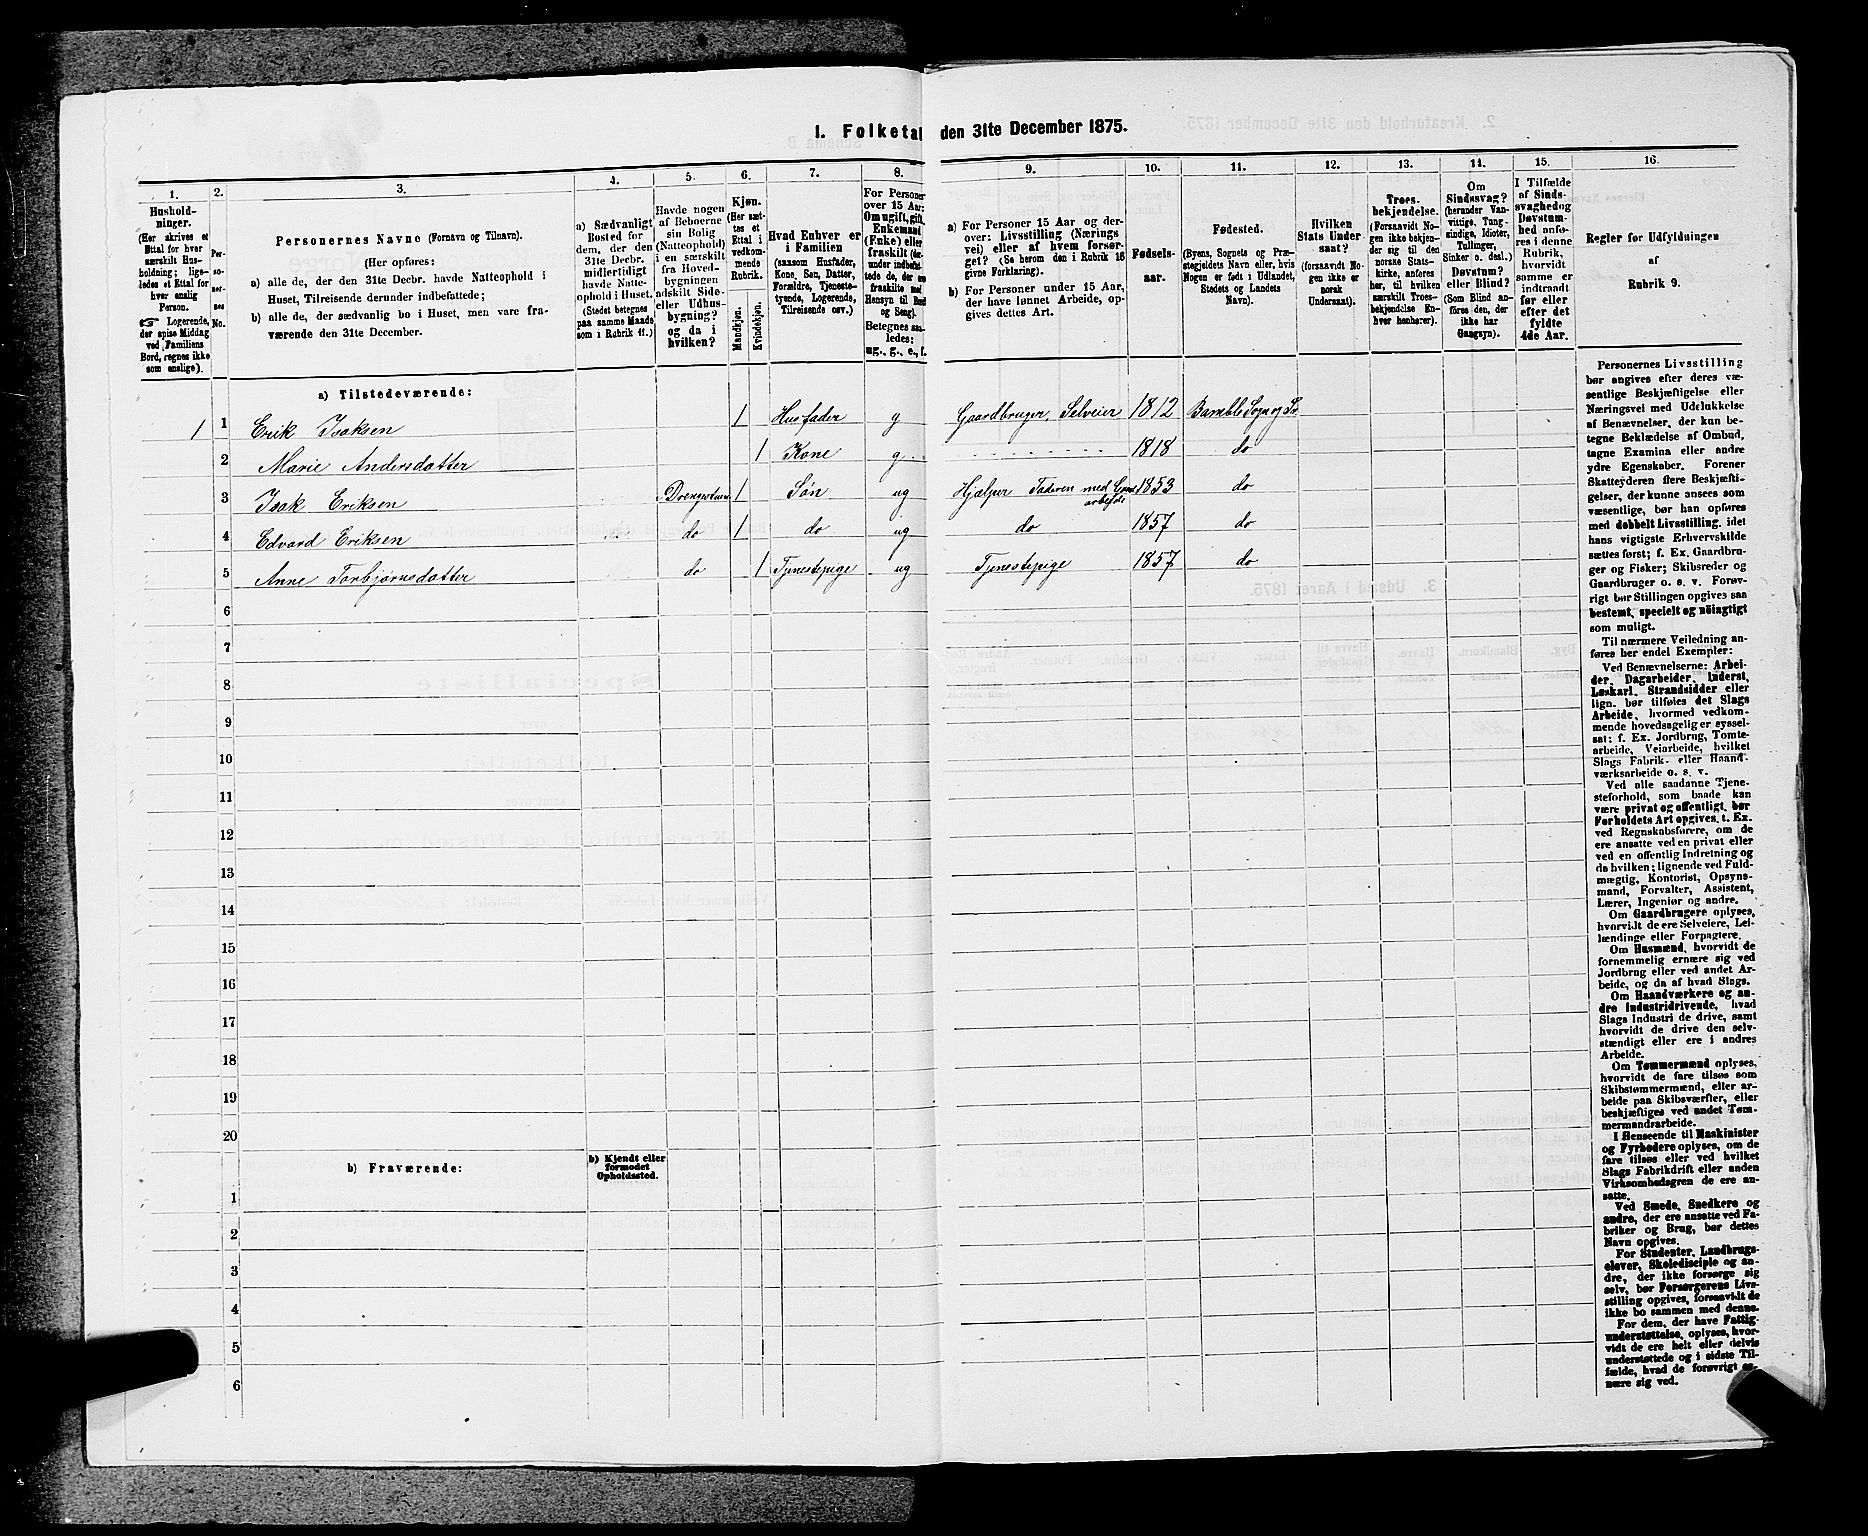 I. Folketal den 31te December 1875.
1. 2. 3. 4. 5. 6. 7. 8. 9. 10. 11. 12. 13. 14. 15. 16.
Hushold-
ninger.
(Her skrives et
Ettal for hver
særskilt Hus-
holdning; lige-
ledes et Ettal for
hver enslig
Person.
☞ Logerende,
der spise Middag
ved Familiens
Bord, regnes ikke
som enslige).
Per-
so-
ner-
nes
No.
Personernes Navne (Fornavn og Tilnavn).
(Her opføres:
a) alle de, der den 31te Decbr. havde Natteophold i
Huset, Tilreisende derunder indbefattede;
b) alle de, der sædvanlig bo i Huset, men vare fra-
værende den 31te December.
a) Sædvanligt
Bosted for
dem, der den
31te Decbr.
midlertidigt
havde Natte-
ophold i Huset.
(Stedet betegnes
paa samme Maade
som i Rubrik 11.)
Havde nogen
af Beboerne
sin Bolig
(Natteophold)
i en særskilt
fra Hoved-
bygningen
adskilt Side-
eller Udhus-
bygning?
og da i
hvilken?
Kjøn.
(Her sæt-
tes et
Ettal i
vedkom-
mende
Rubrik.
Mandkjøn.
Kvindekjøn.
Hvad Enhver er
i Familien
(saasom Husfader,
Kone, Søn, Datter,
Forældre, Tjeneste-
tyende, Logerende,
Tilreisende osv.)
For Personer
over 15 Aar:
Om ugift, gift,
Enkemand
(Enke) eller
fraskilt
Betegnes saa-
ledes:
ug., g., e., f.
a) For Personer 15 Aar og der-
over: Livsstilling (Nærings
vei) eller af hvem forsør-
get? (Se herom den i Rubrik 16
givne Forklaring).
b) For Personer under 15 Aar,
der have lønnet Arbeide, op-
gives dettes Art.
Fødsels-
aar.
Fødested.
(Byens, Sognets og Præ-
stegjeldets Navn eller, hvis
Nogen er født i Udlandet,
Stedets og Landets
Navn).
Hvilken
Stats Under
saat?
(forsaavidt No-
gen ikke er
norsk
Undersaat).
Troes-
bekjendelse.
(Forsaavidt No-
gen ikke bekjen-
der sig til den
norske Stats-
kirke, anføres
her, til hvilken
særskilt Troes-
bekjendelse En-
hver henhører).
Om
Sindssvag?
(herunder Van-
vittige, Tung-
sindige, Idioter,
Tullinger,
Sinker o. desl.)
Døvstum?
eller Blind?
(Som Blind an-
føres den, der
ikke har
Gangsyn).
I Tilfælde
af Sinds-
svaghed og
Døvstum-
hed anfø-
res i denne
Rubrik,
hvorvidt
samme er
indtraadt
før eller
efter det
fyldte
4de Aar.
Regler for Udfyldningen
af
Rubrik 9.
a) Tilstedeværende:
1 1 Erik Isaksen 1 Husfader g Gaardbruger, Selveier 1812 Bamble Sogn og Pr.
2 Marie Andersdatter 1 Kone g 1818 do
3 Isak Eriksen Drengestuen 1 Søn ug Hjælper Faderen med Gaards arbejde 1853 do
4 Edvard Eriksen do 1 do ug do 1857 do
5 Anne Torbjørnsdatter do 1 Tjenestepige ug Tjenestepige 1857 do
6
7
8
9
10
11
12
13
14
15
16
17
18
19
20
b) Fraværende:
b) Kjendt eller
formodet
Opholdssted.
1
2
3
4
5
6
Personernes Livsstilling
bør angives efter deres væ-
sentlige Beskjæftigelse eller
Næringsvei med Udelukkelse
af Benævnelser, der kun be-
tegne Beklædelse af Ombud,
tagne Examina eller andre
ydre Egenskaber. Forener
Skatteyderen flere Beskjæfti-
gelser, der kunne ansees som
væsentlige, bør han opføres
med dobbelt Livsstilling, idet
hans vigtigste Erhvervskilde
sættes først; f. Ex. Gaardbru-
ger og Fisker; Skibsreder og
Gaardbruger o. s. v. Forøv-
rigt bør Stillingen opgives saa
bestemt, specielt og nøiagtigt
som muligt.
Til nærmere Veiledning an-
føres her endel Exempler:
Ved Benævnelserne: Arbei-
der, Dagarbeider, Inderst,
Løskarl, Strandsidder eller
lign. bør tilføies det Slags
Arbeide, hvormed vedkom-
mende hovedsagelig er syssel-
sat; f. Ex. Jordbrug, Tomte-
arbeide, Veiarbeide, hvilket
Slags Fabrik- eller Haand-
værksarbeide o. s. v.
Ved alle saadanne Tjene-
steforhold, som baade kan
være privat og offentligt, bør
Forholdets Art opgives, t. Ex.
ved Regnskabsførere, om de
ere ansatte ved en privat eller
ved en offentlig Indretning og
da hvilken; lignende ved Fuld-
mægtig, Kontorist, Opsyns-
mand, Forvalter, Assistent,
Lærer, Ingeniør og andre.
Om Gaardbrugere oplyses,
hvorvidt de ere Selveiere, Lei-
lændinge eller Forpagtere.
Om Husmænd, hvorvidt de
fornemmelig ernære sig ved
Jordbrug eller ved andet Ar-
beide, og da af hvad Slags.
Om Haandværkere og an-
dre Industridrivende, hvad
Slags Industri de drive, samt
hvorvidt de drive den selv-
stændigt eller ere i andres
Arbeide.
Om Tømmermænd oplyses,
hvorvidt de fare tilsøs som
Skibstømmermænd, eller ar-
beide paa Skibsværfter, eller
beskjæftiges ved andet Tøm-
mermandrarbeide.
I Henseende til Maskinister
og Fyrbødere oplyses, om de
fare tilsøs eller ved hvilket
Slags Fabrikdrift eller anden
Virksomhedsgren de ere an-
satte.
Ved Smede, Snedkere og
andre, der ere ansatte ved Fa-
briker og Brug, bør dettes
Navn opgives.
For Studenter, Landbrugs-
elever, Skoledisciple og an-
dre, der ikke forsørge sig
selv, bør Forsørgerens Livs-
stilling opgives, forsaavidt de
ikke bo sammen med denne.
For dem, der have Fattig-
understøttelse, oplyses, hvor-
vidt de ere helt eller delvis
understøttede og i sidste Til-
fælde, hvad de forøvrigt er-
nære sig ved.